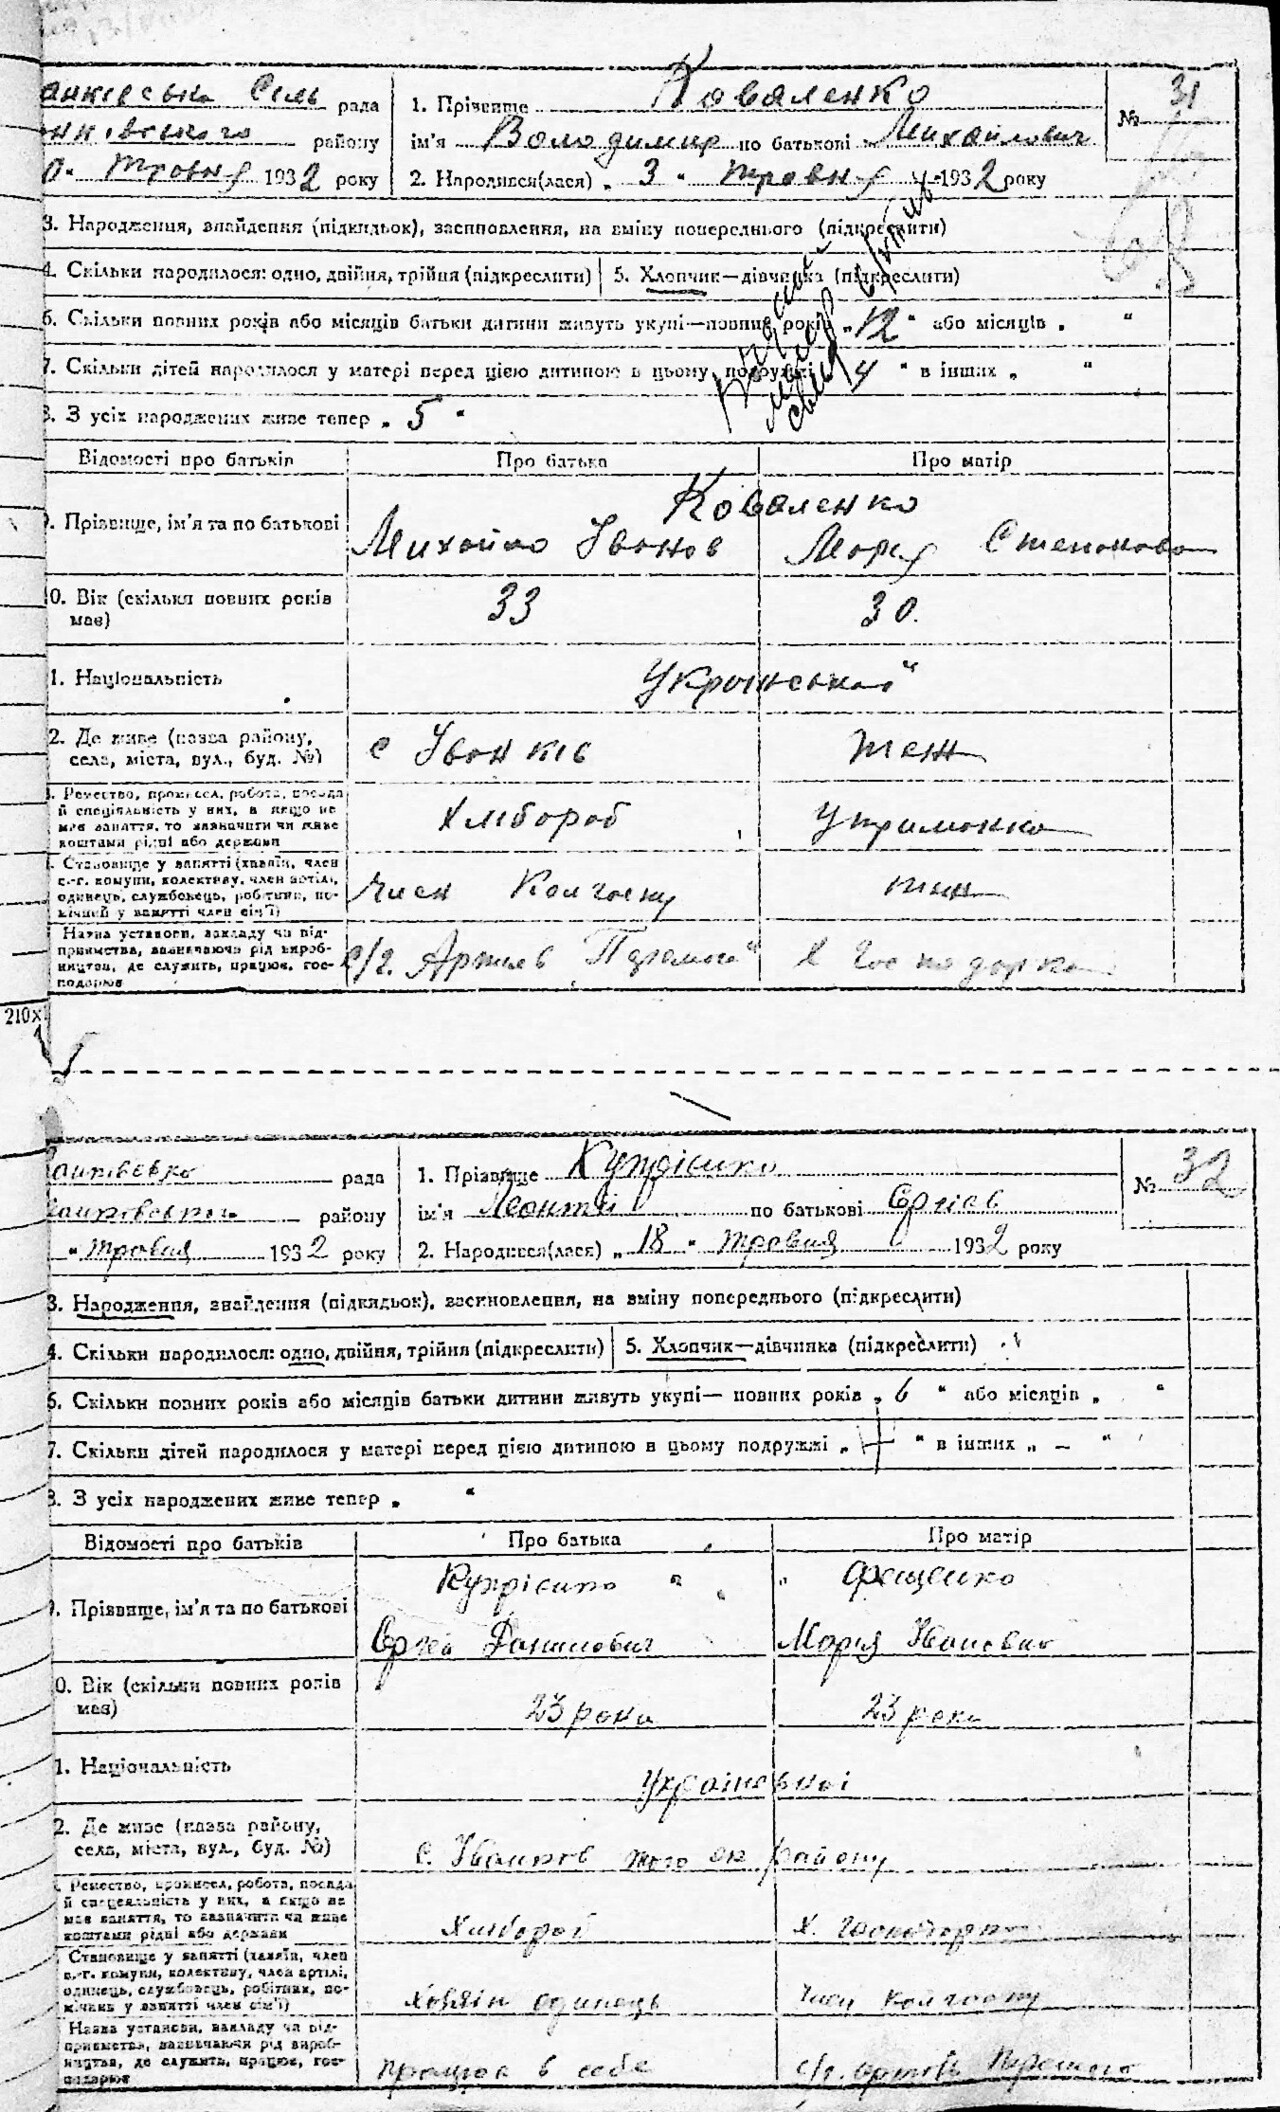 анківська Сель рада
1. Прізвище Коваленко
№ 31
нківського району
ім'я Володимир по батькові Михайлович
Травня 1932 року
2. Народився(лася) „ 3 " травня 1932 року
3. Народження, знайдення (підкидьок), засиновлення, на зміну попереднього (підкреслити)
4. Скільки народилося: одно, двійня, трійня (підкреслити) 5. Хлопчик—дівчинка (підкреслити)
6. Скільки повних років або місяців батьки дитини живуть укупі—повних років „ 12 " або місяців „ "
7. Скільки дітей народилося у матері перед цією дитиною в цьому подружжі 4 " в інших „ "
8. З усіх народжених живе тепер „ 5 "
Відомості про батьків Про батька Про матір
Коваленко
9. Прізвище, ім'я та по батькові
Михайло Іванов Марія Степанова
0. Вік (скільки повних років має) 33 30.
1. Національність Української
2. Де живе (назва району, села, міста, вул., буд. №) с Іванків теж
Ремество, промисел, робота, посада й спеціяльність у них, а якщо не має заняття, то зазначити чи живе коштами рідні або держави
Хлібороб Утриманка
Становище у занятті (хазяїн, член с.-г. комуни, колективу, член артілі, одинець, службовець, робітник, помічний у занятті член сім'ї)
Член Колгоспу теж
Назва установи, закладу чи підприємства, зазначаючи рід виробництва, де служить, працює, господарює
с/г. Артиль Х Господарка
210х
рада
1. Прізвище Купрієнко
№ 32
району
ім'я Леонтій по батькові Сргієв
" травня 1932 року
2. Народився(лася) „ 18 " травня 1932 року
3. Народження, знайдення (підкидьок), засиновлення, на зміну попереднього (підкреслити)
4. Скільки народилося: одно, двійня, трійня (підкреслити) 5. Хлопчик—дівчинка (підкреслити)
6. Скільки повних років або місяців батьки дитини живуть укупі— повних років „ 6 " або місяців „ "
7. Скільки дітей народилося у матері перед цією дитиною в цьому подружжі „ " в інших „ – "
8. З усіх народжених живе тепер „ "
Відомості про батьків Про батька Про матір
Купрієнко " " Фещенко
9. Прізвище, ім'я та по батькові
Сргій Данилович Марія Іванівна
0. Вік (скільки повних років має) 23 роки 23 роки
1. Національність Української
2. Де живе (назва району, села, міста, вул., буд. №) с. Іванків того ж району
Ремество, промисел, робота, посада й спеціяльність у них, а якщо не має заняття, то зазначити чи живе коштами рідні або держави
Хлібороб х. господарка
Становище у занятті (хазяїн, член с.-г. комуни, колективу, член артілі, одинець, службовець, робітник, помічний у занятті член сім'ї)
хозяїн одинець член колгоспу
Назва установи, закладу чи підприємства, зазначаючи рід виробництва, де служить, працює, господарює
працює в себе с/г. артіль